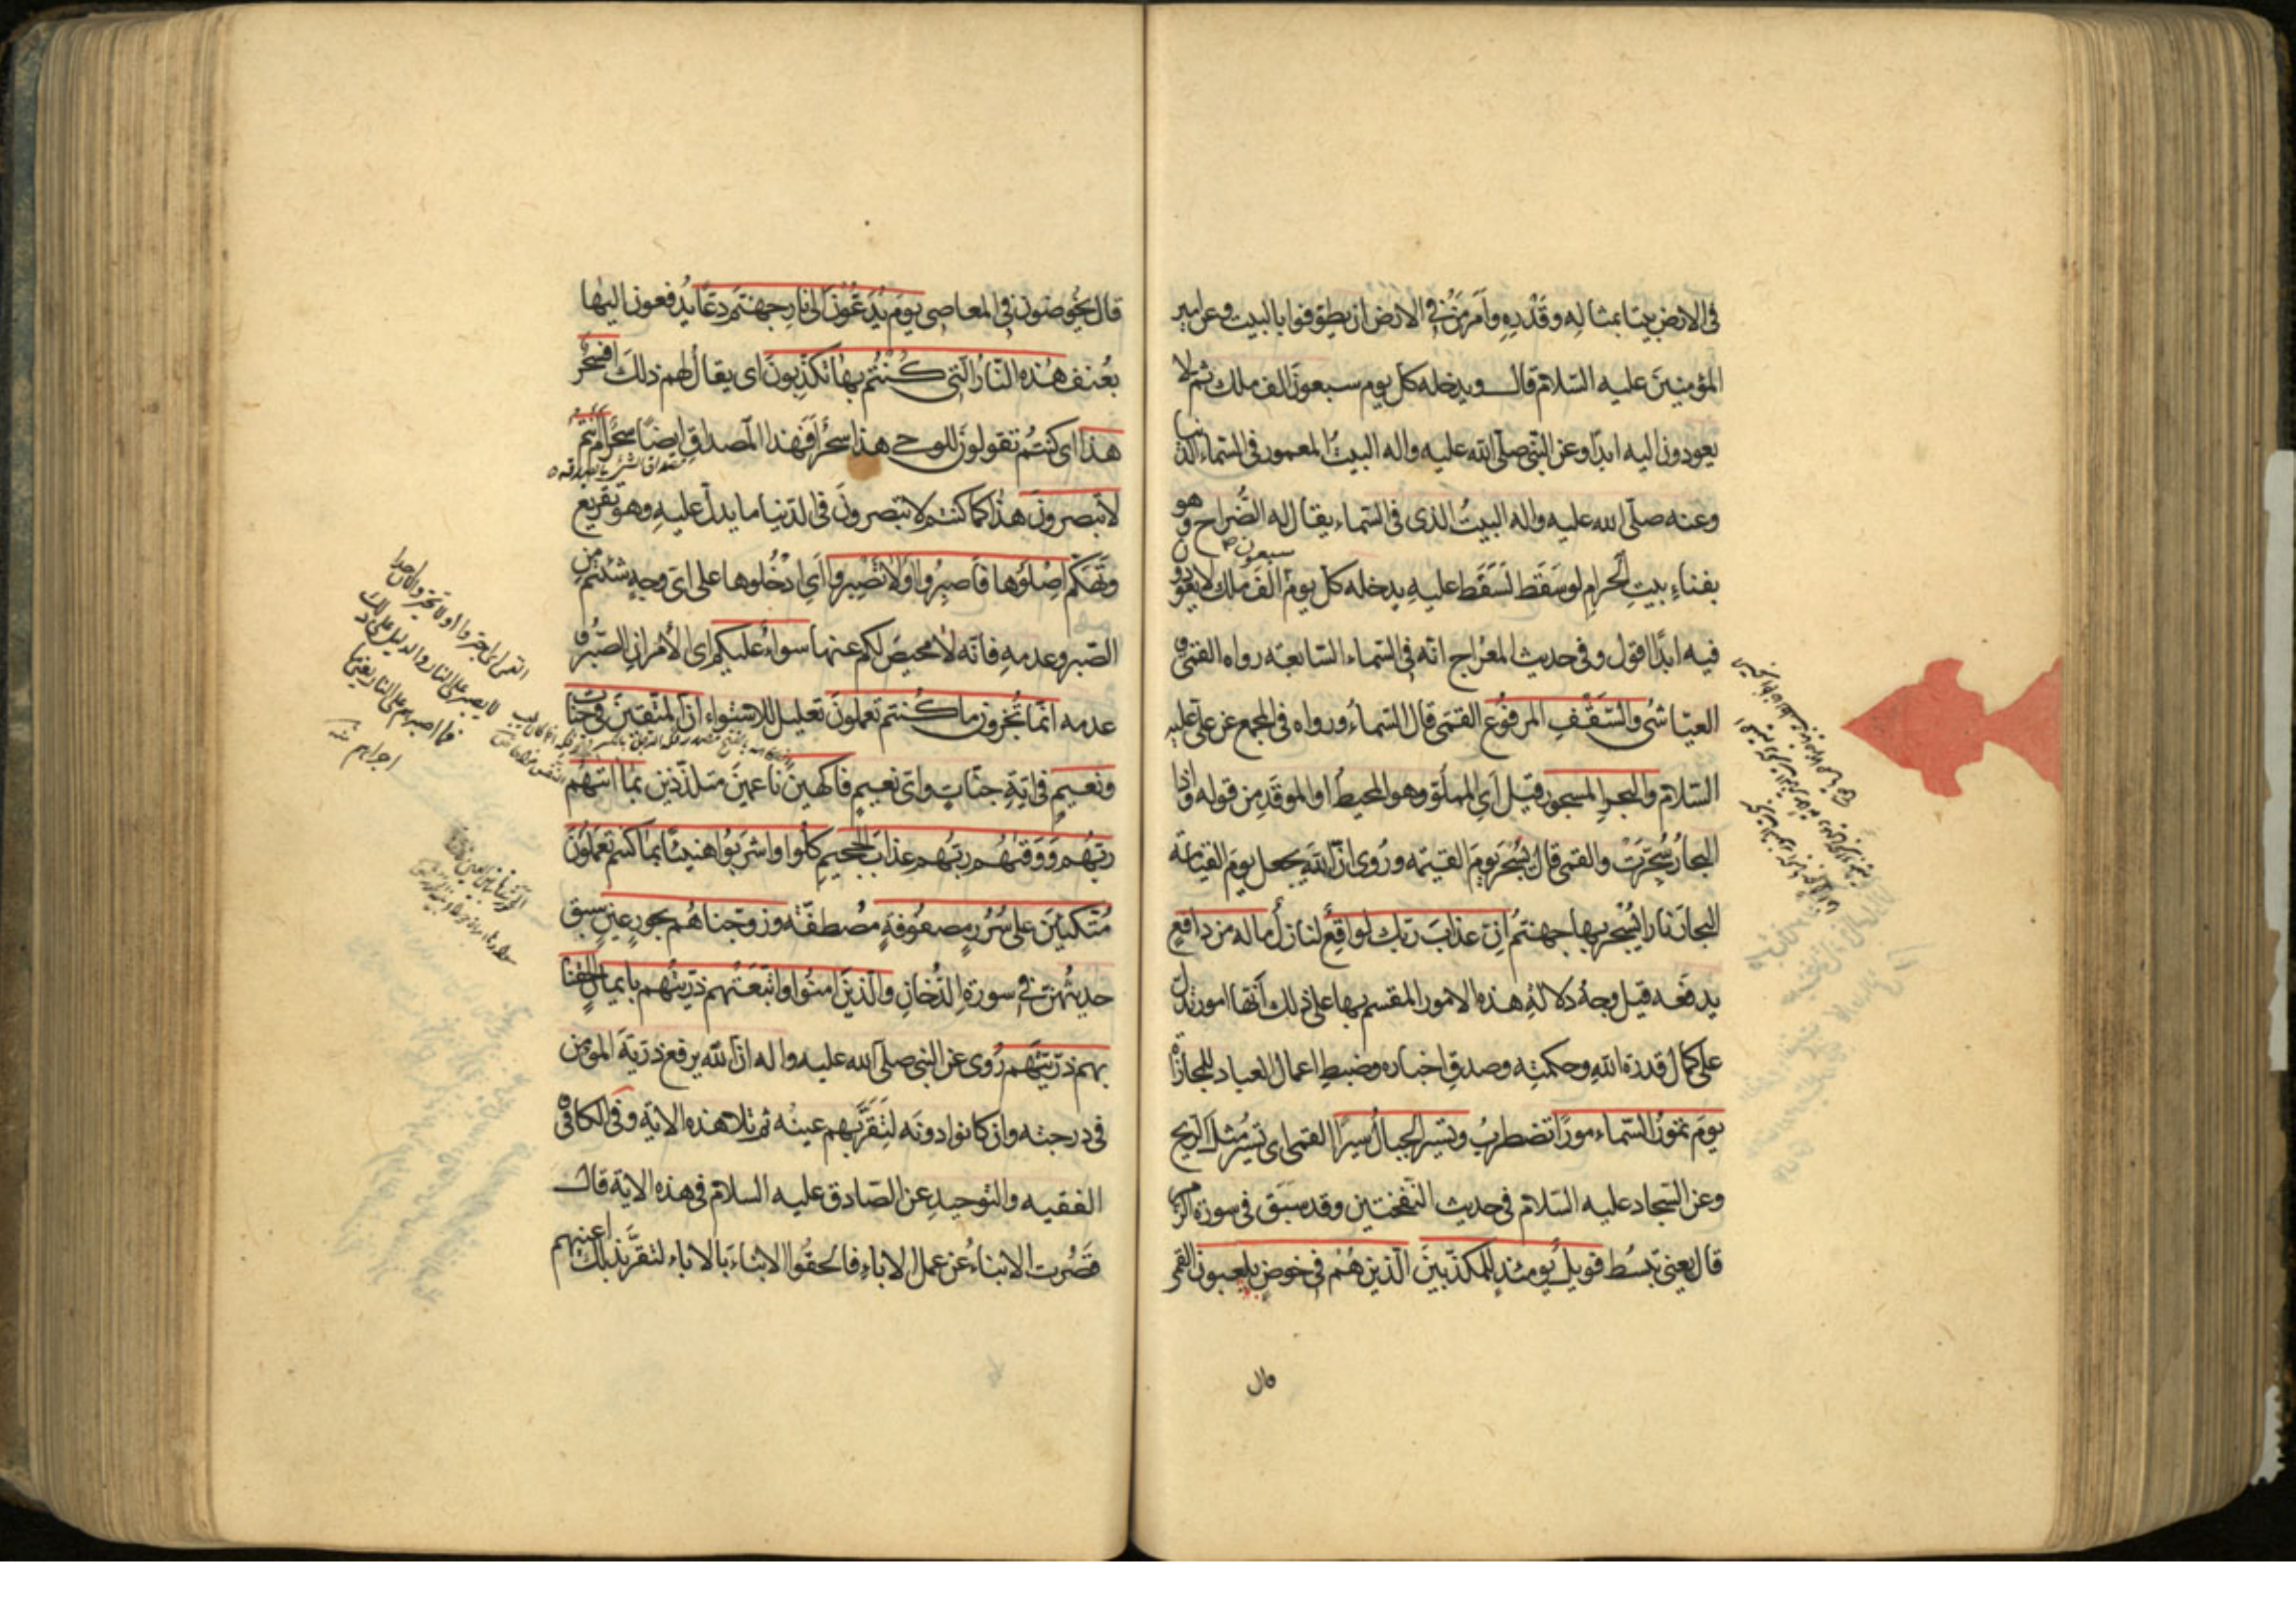 فى الارض بيتا بمثاله وقدره وامر من فى الارض ان يطوفوا بالبيت وعن امير
المؤمنين عليه السلام قال ويدخله كل يوم سبعون الف ملك ثم لا
يعودون اليه ابدا وعن النبى صلى الله عليه واله البيت المعمور فى السماء الدنيا
وعنه صلى الله عليه واله البيت الذى فى السماء يقال له الضراح وهو
بفناء بيت الحرام لو سقط لسقط عليه يدخله كل يوم الف ملك لا يعودون
سبعون
فيه ابدا اقول وفى حديث المعراج انه فى السماء السابعة رواه القمى و
العياشى والسقف المرفوع القمى قال السماء ورواه فى المجمع عن على عليه
السلام والبحر المسجور قيل اى المملو وهو المحيط او الموقد من قوله واذا
البحار سجرت والقمى قال يسجر يوم القيمه وروى ان الله يجعل يوم القيامة
البحار نارا يسجر بها جهنم ان عذاب ربك لواقع لنازل ما له من دافع
يدفعه قيل وجه دلالة هذه الامور المقسم بها على ذلك انها امور تدل
على كمال قدرة الله وحكمته وصدق اخباره وضبط اعمال العباد للمجازاة
يوم تمور السماء مورا تضطرب وتسير الجبال سيرا القمى اى تسير مثل الريح
وعن السجاد عليه السلام فى حديث النفختين وقد سبق فى سورة الزمر
قال يعنى تبسط فويل يومئذ للمكذبين الذين هم فى خوض يلعبون القمى
قال
قال يخوضون فى المعاصى يوم يدعون الى نار جهنم دعا يدفعون اليها
بعنف هذه النار التى كنتم بها تكذبون اى يقال لهم ذلك افسحر
هذا اى كنتم تقولون للوحى هذا سحر افهذا المصداق ايضا سحر ام انتم
لا تبصرون هذا كما كنتم لا تبصرون فى الدنيا ما يدل عليه وهو تقريع
وتهكم اصلوها فاصبروا او لا تصبروا اى ادخلوها على اى وجه شئتم من
الصبر وعدمه فانه لا محيص لكم عنها سواء عليكم اى الامران الصبر و
عدمه انما تجزون ما كنتم تعملون تعليل للاستواء ان المتقين فى جنات
ونعيم فى اية جنات واى نعيم فاكهين ناعمين متلذذين بما اتيهم
ربهم ووقيهم ربهم عذاب الجحيم كلوا واشربوا هنيئا بما كنتم تعملون
متكئين على سرر مصفوفة مصطفة وزوجناهم بحور عين سبق
حديثهن فى سورة الدخان والذين امنوا واتبعتهم ذريتهم بايمان الحقنا
بهم ذريتهم روى عن النبى صلى الله عليه واله ان الله يرفع ذرية المؤمن
فى درجته وان كانوا دونه لتقر بهم عينه ثم تلا هذه الاية وفى الكافى و
الفقيه والتوحيد عن الصادق عليه السلام فى هذه الاية قال
قصرت الابناء عن عمل الاباء فالحقوا الابناء بالاباء لتقر بذلك اعينهم
القمى اى اجترؤا او لا تجترؤا لان احدا
لا يصبر على النار والدليل على ذلك
فما اصبرهم على النار يعنى ما
اجراهم